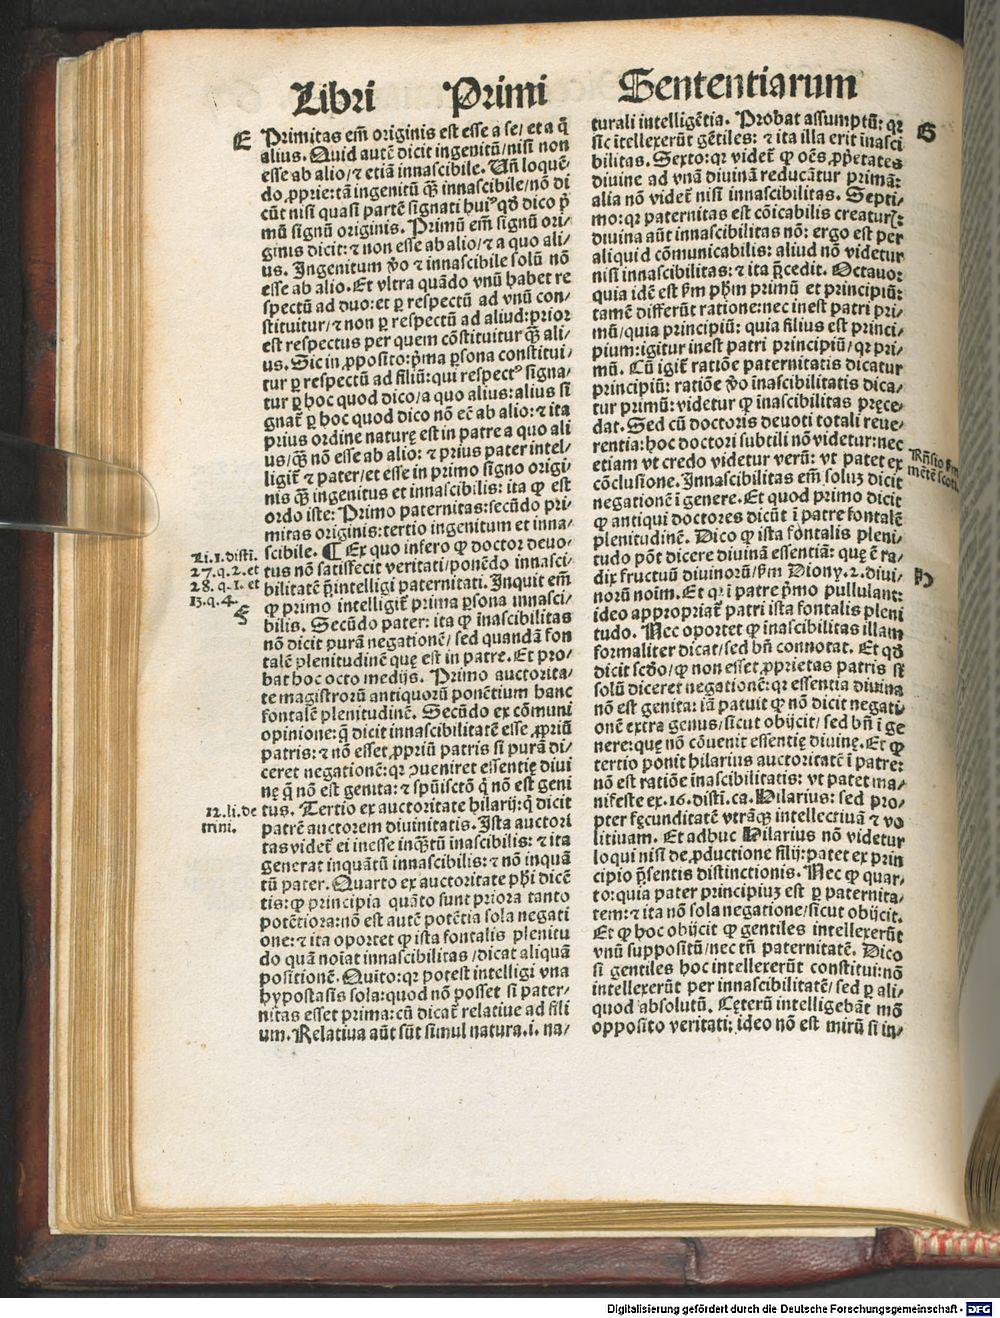 Libri Primi Sententiarum
E
Primitas em̄ originis est esse a se/ et a q̄
alius. Quid autē dicit ingenitū/nisi non
esse ab alio/ ⁊ etiā innascibile. Vn̄ loquē⸗
do ꝓprie: tā ingenitū qͣ̄ innascibile/nō di
cūt nisi quasi partē signati huiꝰ qd̄ dico p̄
mū signū originis. Primū em̄ signū ori⸗
ginis dicit: ⁊ non esse ab alio/ ⁊ a quo ali⸗
us. Ingenitum ꝟo ⁊ innascibile solū nō
esse ab alio. Et vltra quādo vnū habet re
spectū ad duo: et ꝑ respectū ad vnū con⸗
stituitur/ ⁊ non ꝑ respectū ad aliud: prior
est respectus per quem cōstituitur qͣ̄ ali⸗
us. Sic in ꝓposito: p̄ma ꝑsona constitui⸗
tur ꝑ respectū ad filiū: qui respectꝰ signa⸗
tur ꝑ hoc quod dico/ a quo alius: alius si
gnat᷑ ꝑ hoc quod dico nō eē ab alio: ⁊ ita
prius ordine naturę est in patre a quo ali
us/ qͣ̄ nō esse ab alio: ⁊ prius pater intel⸗
ligit᷑ ⁊ pater/ et esse in primo signo origi⸗
nis qͣ̄ ingenitus et innascibilis: ita ꝙ est
ordo iste: Primo paternitas: secūdo pri⸗
mitas originis: tertio ingenitum et inna⸗
scibile. ¶ Ex quo infero ꝙ doctor deuo⸗
tus nō satisfecit veritati/ ponēdo innasci⸗
bilitatē p̄intelligi paternitati. Inquit em̄
ꝙ primo intelligit᷑ prima ꝑsona innasci⸗
bilis. Secūdo pater: ita ꝙ inascibilitas
nō dicit purā negationē/ sed quandā fon
talē plenitudinē quę est in patre. Et pro⸗
bat hoc octo medijs. Primo auctorita⸗
te magistrorū antiquorū ponētium hanc
fontalē plenitudinē. Secūdo ex cōmuni
opinione: q̄ dicit innascibilitatē esse ꝓpriū
patris: ⁊ nō esset ꝓpriū patris si purā di⸗
ceret negationē: qꝛ ↄueniret essentię diui
nę q̄ nō est genita: ⁊ spūiscto q̇ nō est geni
tus. Tertio ex auctoritate hilarij: q̇ dicit
patrē auctorem diuinitatis. Ista auctori
tas videt᷑ ei inesse inqͣ̄tū inascibilis: ⁊ ita
generat inquātū innascibilis: ⁊ nō inquā
tū pater. Quarto ex auctoritate ph̄i dicē
tis: ꝙ principia quāto sunt priora tanto
potētiora: nō est autē potētia sola negati
one: ⁊ ita oportet ꝙ ista fontalis plenitu
do quā noīat innascibilitas /dicat aliquā
positionē. Quīto: qꝛ potest intelligi vna
hypostasis sola: quod nō posset si pater⸗
nitas esset prima: cū dicat᷑ relatiue ad fili
um. Relatiua aūt sūt simul natura. i. na⸗
Li. 1. disti.
27. q. 2. et
28. q. 1. et
13. q. 4.
F
12. li. de
trini.
turali intelligētia. Probat assumptū: qꝛ
sic ītellexerūt gētiles: ⁊ ita illa erit īnasci
bilitas. Sexto: qꝛ videt᷑ ꝙ oēs ꝓp̄etates
diuine ad vnā diuinā reducātur primā:
alia nō videt᷑ nisi innascibilitas. Septi⸗
mo: qꝛ paternitas est cōicabilis creaturꝭ:
diuina aūt innascibilitas nō: ergo est per
aliquid cōmunicabilis: aliud nō videtur
nisi innascibilitas: ⁊ ita p̄cedit. Octauo:
quia idē est ẜm ph̄m primū et principiū:
tamē differūt ratione: nec inest patri pri⸗
mū/ quia principiū: quia filius est princi⸗
pium: igitur inest patri principiū/ qꝛ pri⸗
mū. Cū igit᷑ ratiōe paternitatis dicatur
principiū: ratiōe ꝟo īnascibilitatis dica⸗
tur primū: videtur ꝙ īnascibilitas pręce⸗
dat. Sed cū doctoris deuoti totali reue⸗
rentia: hoc doctori subtili nō videtur: nec
etiam vt credo videtur verū: vt patet ex
cōclusione. Innascibilitas em̄ soluꝫ dicit
negationē ī genere. Et quod primo dicit
ꝙ antiqui doctores dicūt ī patre fontalē
plenitudinē. Dico ꝙ ista fōntalis pleni⸗
tudo pōt dicere diuinā essentiā: quę ē ra⸗
dix fructuū diuinorū/ ẜm Diony. 2. diui⸗
norū noim. Et qꝛ ī patre p̄mo pullulant:
ideo appropriat᷑ patri ista fontalis pleni
tudo. Nec oportet ꝙ inascibilitas illam
formaliter dicat/ sed bn̄ connotat. Et qd̄
dicit scd̄o/ ꝙ non esset ꝓprietas patris si
solū diceret negationē: qꝛ essentia diuina
nō est genita: iā patuit ꝙ nō dicit negati
onē extra genus/ sicut obijcit/ sed bn̄ ī ge
nere: quę nō cōuenit essentię diuinę. Et ꝙ
tertio ponit hilarius auctoritatē ī patre:
nō est ratiōe īnascibilitatis: vt patet ma⸗
nifeste ex. 16. disti. ca. Hilarius: sed pro⸗
pter fęcunditatē vtrāqꝫ intellectiuā ⁊ vo
litiuam. Et adhuc Hilarius nō videtur
loqui nisi de ꝓductione filij: patet ex prin
cipio p̄sentis distinctionis. Nec ꝙ quar⸗
to: quia pater principiuꝫ est ꝑ paternita⸗
tem: ⁊ ita nō sola negatione/ sicut obijcit.
Et ꝙ hoc obijcit ꝙ gentiles intellexerūt
vnū suppositū/ nec tn̄ paternitatē. Dico
si gentiles hoc intellexerūt constitui: nō
intellexerūt per innascibilitatē/ sed ꝑ ali⸗
quod absolutū. Cęterū intelligebāt mō
opposito veritati: ideo nō est mirū si in⸗
G
Rn̄sio ẜm
mētē scoti.
H
Digitalisierung gefördert durch die Deutsche Forschungsgemeinschaft - DFG